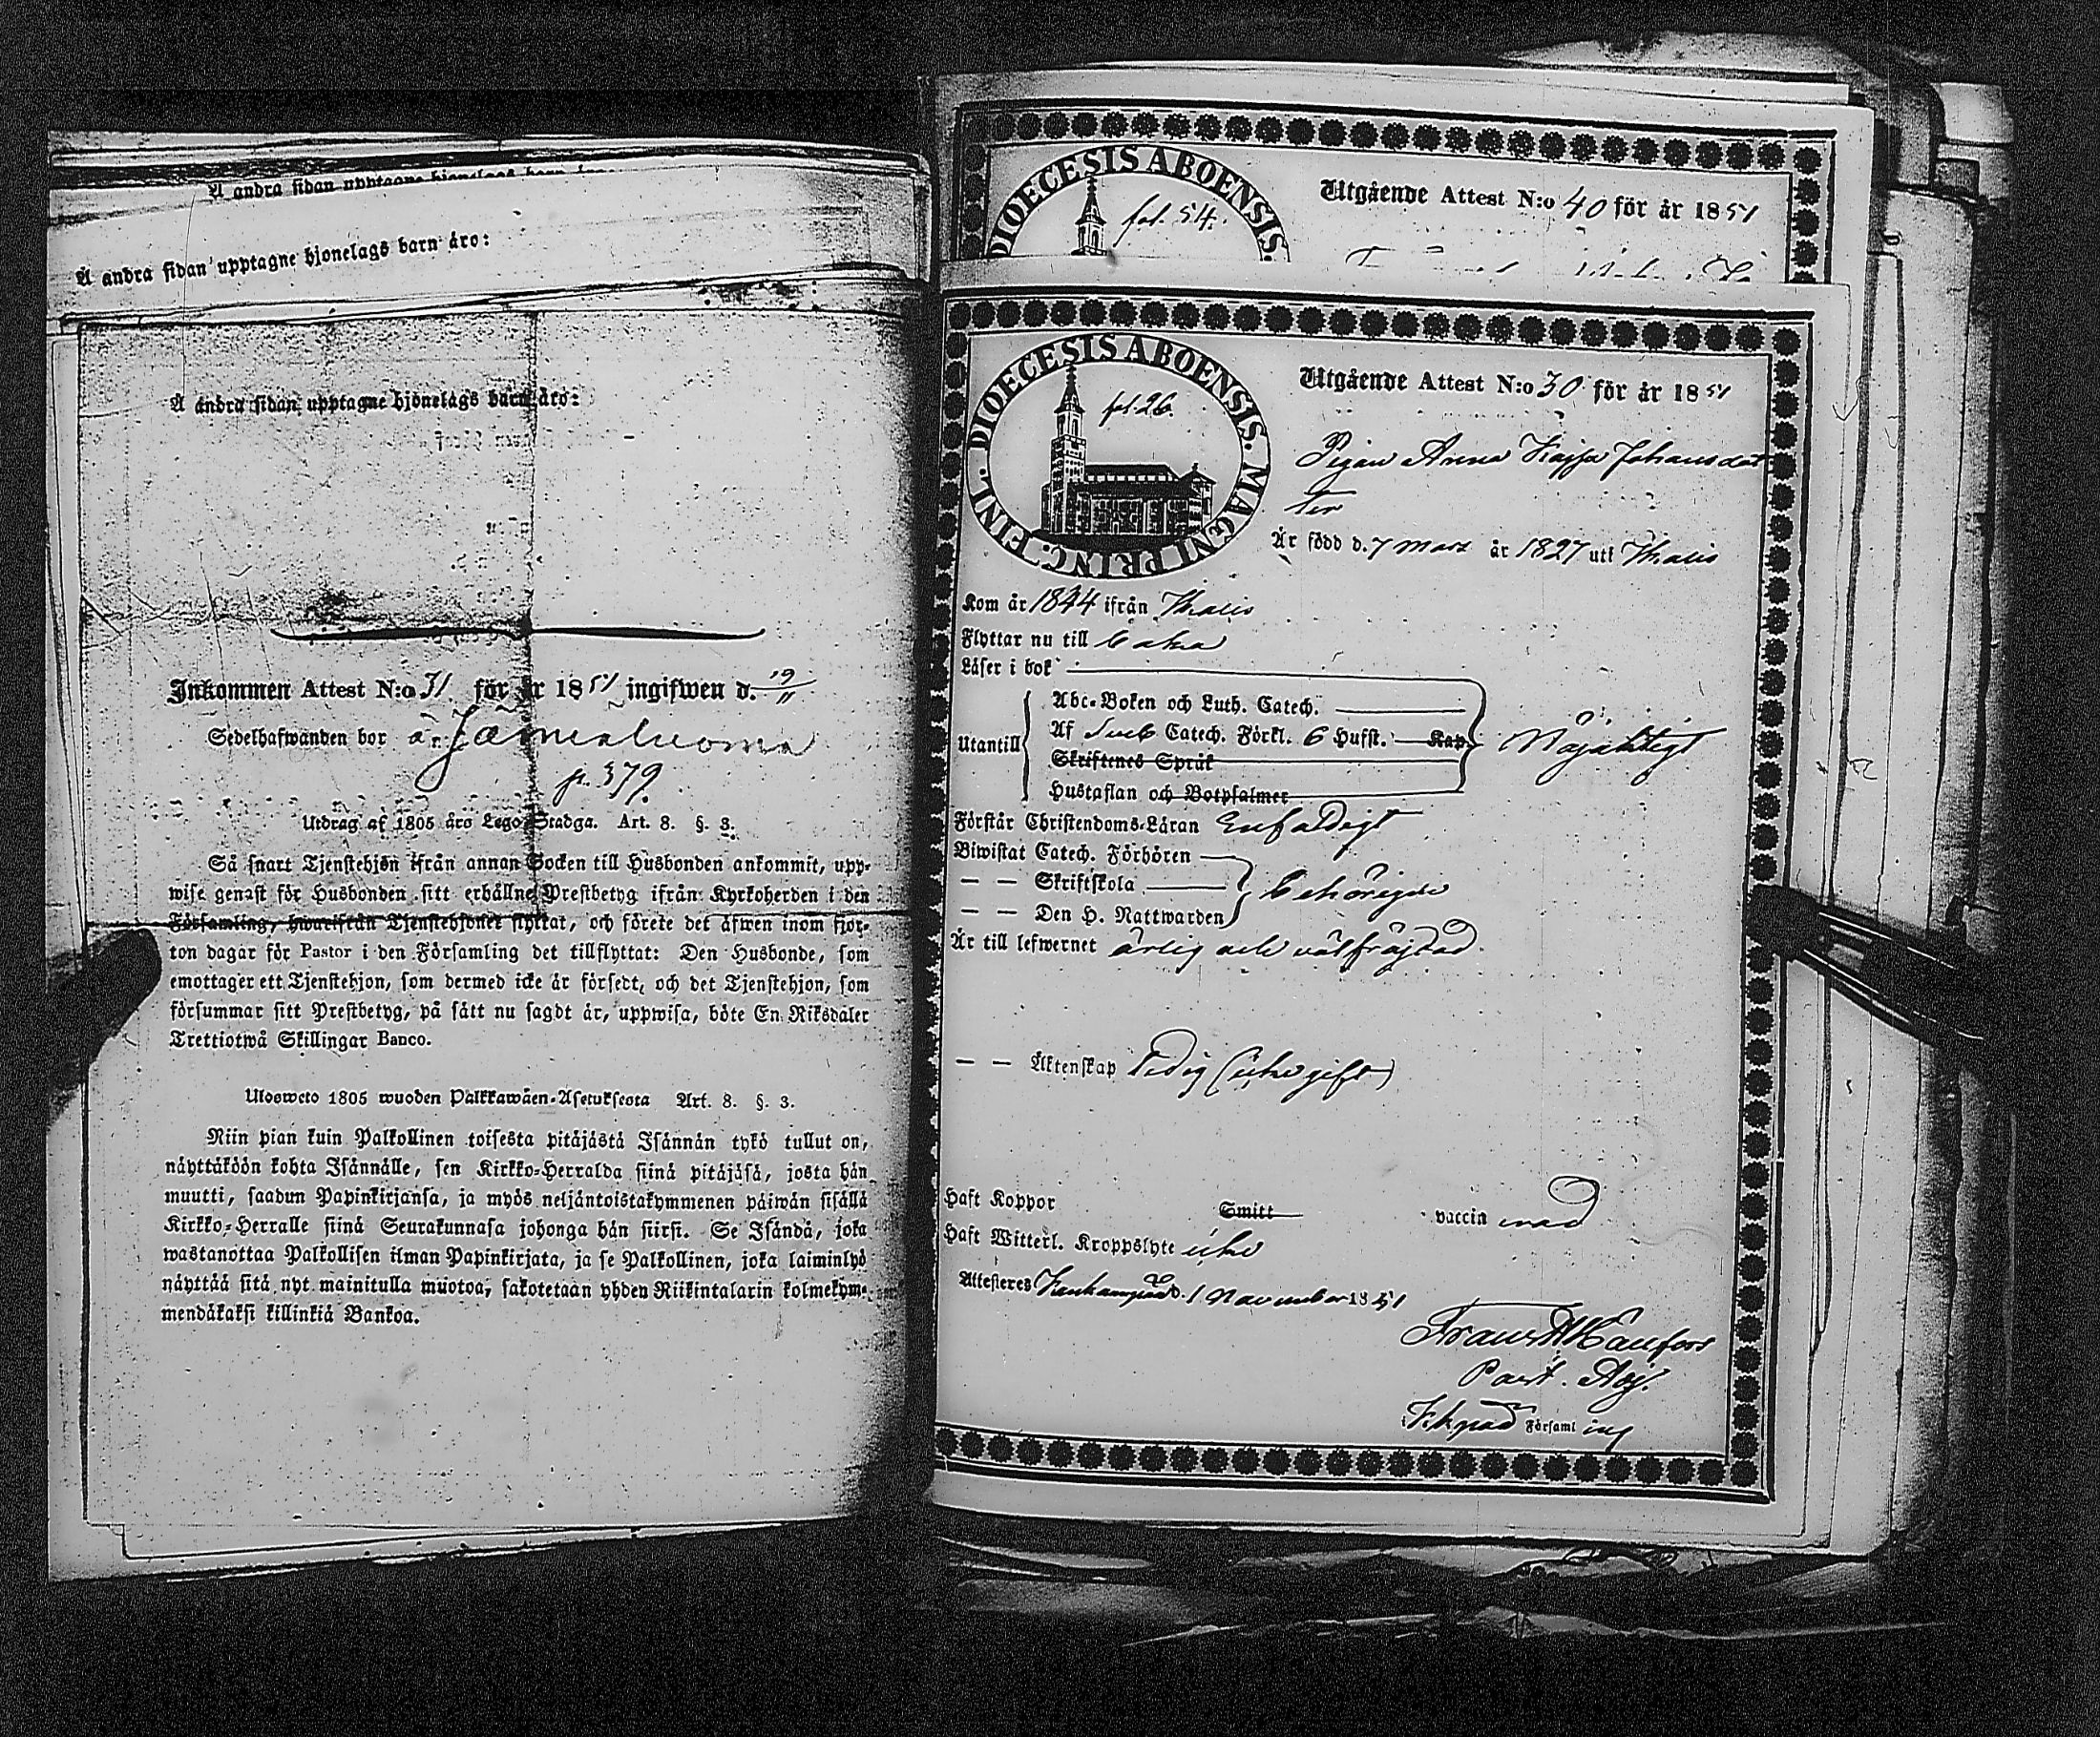 Å andra sidan upptagne hjonelags barn äro:
Å andra sidan upptagne hjonelags barn äro:
Å andra sidan upptagne hjonelags barn äro:
Inkommen Attest N:o 31 för år 1851 ingifwen d. 19/11
Sedelhafwanden bor
p. 379.
Utdrag af 1805 års Lego-Stadga. Art. 8. §. 3.
Så snart Tjenstehjon ifrån annan Socken till Husbonden ankommit, upp-
wise genast för Husbonden sitt erhållne Prestbetyg ifrån Kyrkoherden i den
Församling, hwarifrån Tjenstehjonet flyttat, och förete det äfwen inom fjor-
ton dagar för Pastor i den Församling det tillflyttat: Den Husbonde, som
emottager ett Tjenstehjon, som dermed icke är försedt, och det Tjenstehjon, som
försummar sitt Prestbetyg, på sätt nu sagdt är, uppwisa, böte En Riksdaler
Trettiotwå Skillingar Banco.
Ulosweto 1805 wuoden Palkkawäen-Asetuksesta Art. 8. §. 3.
Niin pian kuin Palkollinen toisesta pitäjästä Isännän tykö tullut on,
näyttäköön kohta Isännälle, sen Kirkko-Herralda siinä pitäjäsä, josta hän
muutti, saadun Papinkirjansa, ja myös neljäntoistakymmenen päiwän sisällä
Kirkko-Herralle siinä Seurakunnasa johonga hän siirsi. Se Isändä, joka
wastanottaa Palkollisen ilman Papinkirjata, ja se Palkollinen, joka laiminlyö
näyttää sitä nyt mainitulla muotoa, sakotetaan yhden Riikintalarin kolmekym-
mendäkaksi killinkiä Bankoa.
DIOECESIS ABOENSIS.
fol. 54.
Utgående Attest N:o 40 för år 1851
DIOECESIS ABOENSIS. MAGNI PRINC. FINL.
fol. 26
Utgående Attest N:o 30 för år 1851
Pigan Anna Kajsa Johansdot
ter
Är född d. 7 Mars år 1827 uti Ithalis
Kom år 1844 ifrån Ithalis
Flyttar nu till
Läser i bok
Utantill
Abc-Boken och Luth. Catech.
Af Sveb Catech. Förkl. 6 Hufst. Kap.
Skriftenes Språk
Hustaflan och Botpsalmer
Nöjaktigt
Förstår Christendoms-Läran Enfaldigt
Biwistat Catech. Förhören
— — Skriftskola
— — Den H. Nattwarden
behörigen
Är till lefwernet ärlig och välfräjdad.
— — Äktenskap ledig (icke gift)
Haft Koppor Smitt vaccinerad
Haft Witterl. Kroppslyte icke
Attesteres Kankanpää d. 1 November 1851
Past. Adj.
i Församling